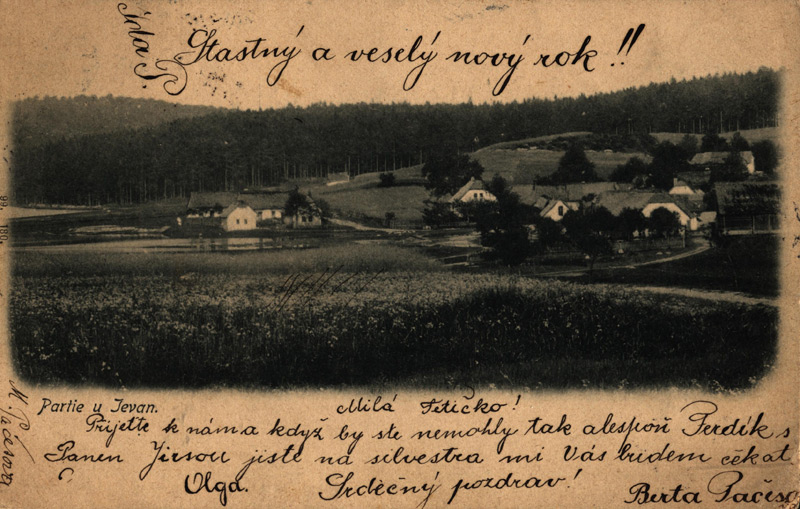 Stastný a veselý nový rok!!
Partie u Jevan.
Milá Tetičko!
Přijeďte k nám a když by ste nemohly tak alespoň Ferdík s
Panen Jirsou jistě na silvestra mi Vás budem čekat
Olga. Srdečný pozdrav!
Berta